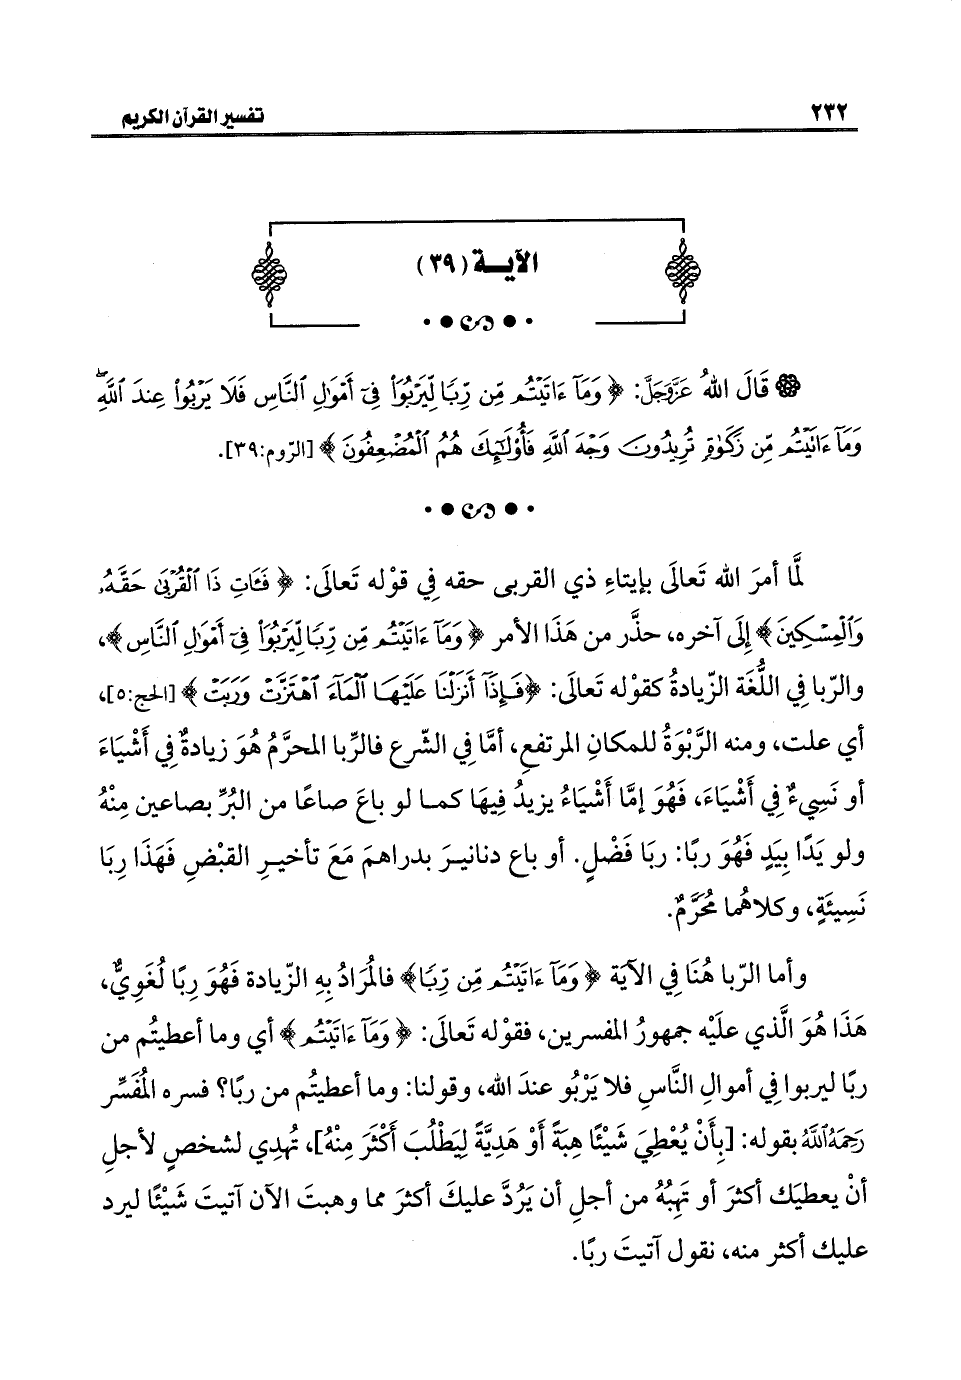 ٢٣٢ تفسير القرآن الكريم
الآيـة (٣٩)
قَالَ اللهُ عَزَّوَجَلَّ: ﴿وَمَآ ءَاتَيْتُم مِّن رِّبًا لِّيَرْبُوَا۟ فِىٓ أَمْوَٰلِ ٱلنَّاسِ فَلَا يَرْبُوا۟ عِندَ ٱللَّهِ ۖ
وَمَآ ءَاتَيْتُم مِّن زَكَوٰةٍ تُرِيدُونَ وَجْهَ ٱللَّهِ فَأُو۟لَـٰٓئِكَ هُمُ ٱلْمُضْعِفُونَ﴾ [الرّوم:٣٩].
لمَّا أمرَ الله تَعالَى بإيتاءِ ذي القربى حقه فِي قوْله تَعالَى: ﴿فَـَٔاتِ ذَا ٱلْقُرْبَىٰ حَقَّهُۥ
وَٱلْمِسْكِينَ﴾ إِلَى آخره، حذَّر من هَذَا الأمر ﴿وَمَآ ءَاتَيْتُم مِّن رِّبًا لِّيَرْبُوَا۟ فِىٓ أَمْوَٰلِ ٱلنَّاسِ﴾،
والرِّبا فِي اللُّغَة الزّيادةُ كقوْله تَعالَى: ﴿فَإِذَآ أَنزَلْنَا عَلَيْهَا ٱلْمَآءَ ٱهْتَزَّتْ وَرَبَتْ﴾ [الحج:٥]،
أي علت، ومنه الرَّبْوَةُ للمكانِ المرتفعِ، أمَّا فِي الشّرع فالرِّبا المحرَّمُ هُوَ زيادةٌ فِي أَشْيَاءَ
أو نَسِيءٌ فِي أَشْيَاءَ، فَهُوَ إمَّا أَشْيَاءُ يزيدُ فِيهَا كمـا لو باعَ صاعًا من البُرِّ بصاعين مِنْهُ
ولو يَدًا بِيَدٍ فَهُوَ ربًا: ربَا فَضْلٍ. أو باع دنانيرَ بدراهمَ مَعَ تأخيرِ القبْضِ فَهَذَا رِبَا
نَسِيئَةٍ، وكلاهُما مُحَرَّمٌ.
وأما الرّبا هُنَا فِي الآيَة ﴿وَمَآ ءَاتَيْتُم مِّن رِّبًا﴾ فالمُرَادُ بِهِ الزّيادة فَهُوَ ربًا لُغَوِيٌّ،
هَذَا هُوَ الَّذي علَيْه جمهورُ المفسرين، فقوْله تَعالَى: ﴿وَمَآ ءَاتَيْتُم﴾ أي وما أعطيتُم من
ربًا ليربوا فِي أموالِ النَّاسِ فلا يَرْبُو عندَ الله، وقولنا: وما أعطيتُم من ربًا؟ فسره المُفَسِّر
رَحِمَهُ اللَّهُ بقوله: [بِأَنْ يُعْطِيَ شَيْئًا هِبَةً أَوْ هَدِيَّةً لِيَطْلُبَ أَكْثَرَ مِنْهُ]، تُهدِي لشخصٍ لأجلِ
أنْ يعطيَك أكثرَ أو تهِبُهُ من أجلِ أن يَرُدَّ عليكَ أكثرَ مما وهبتَ الآن آتيتَ شَيْئًا ليرد
عليك أكثر منه، نقول آتيتَ ربًا.